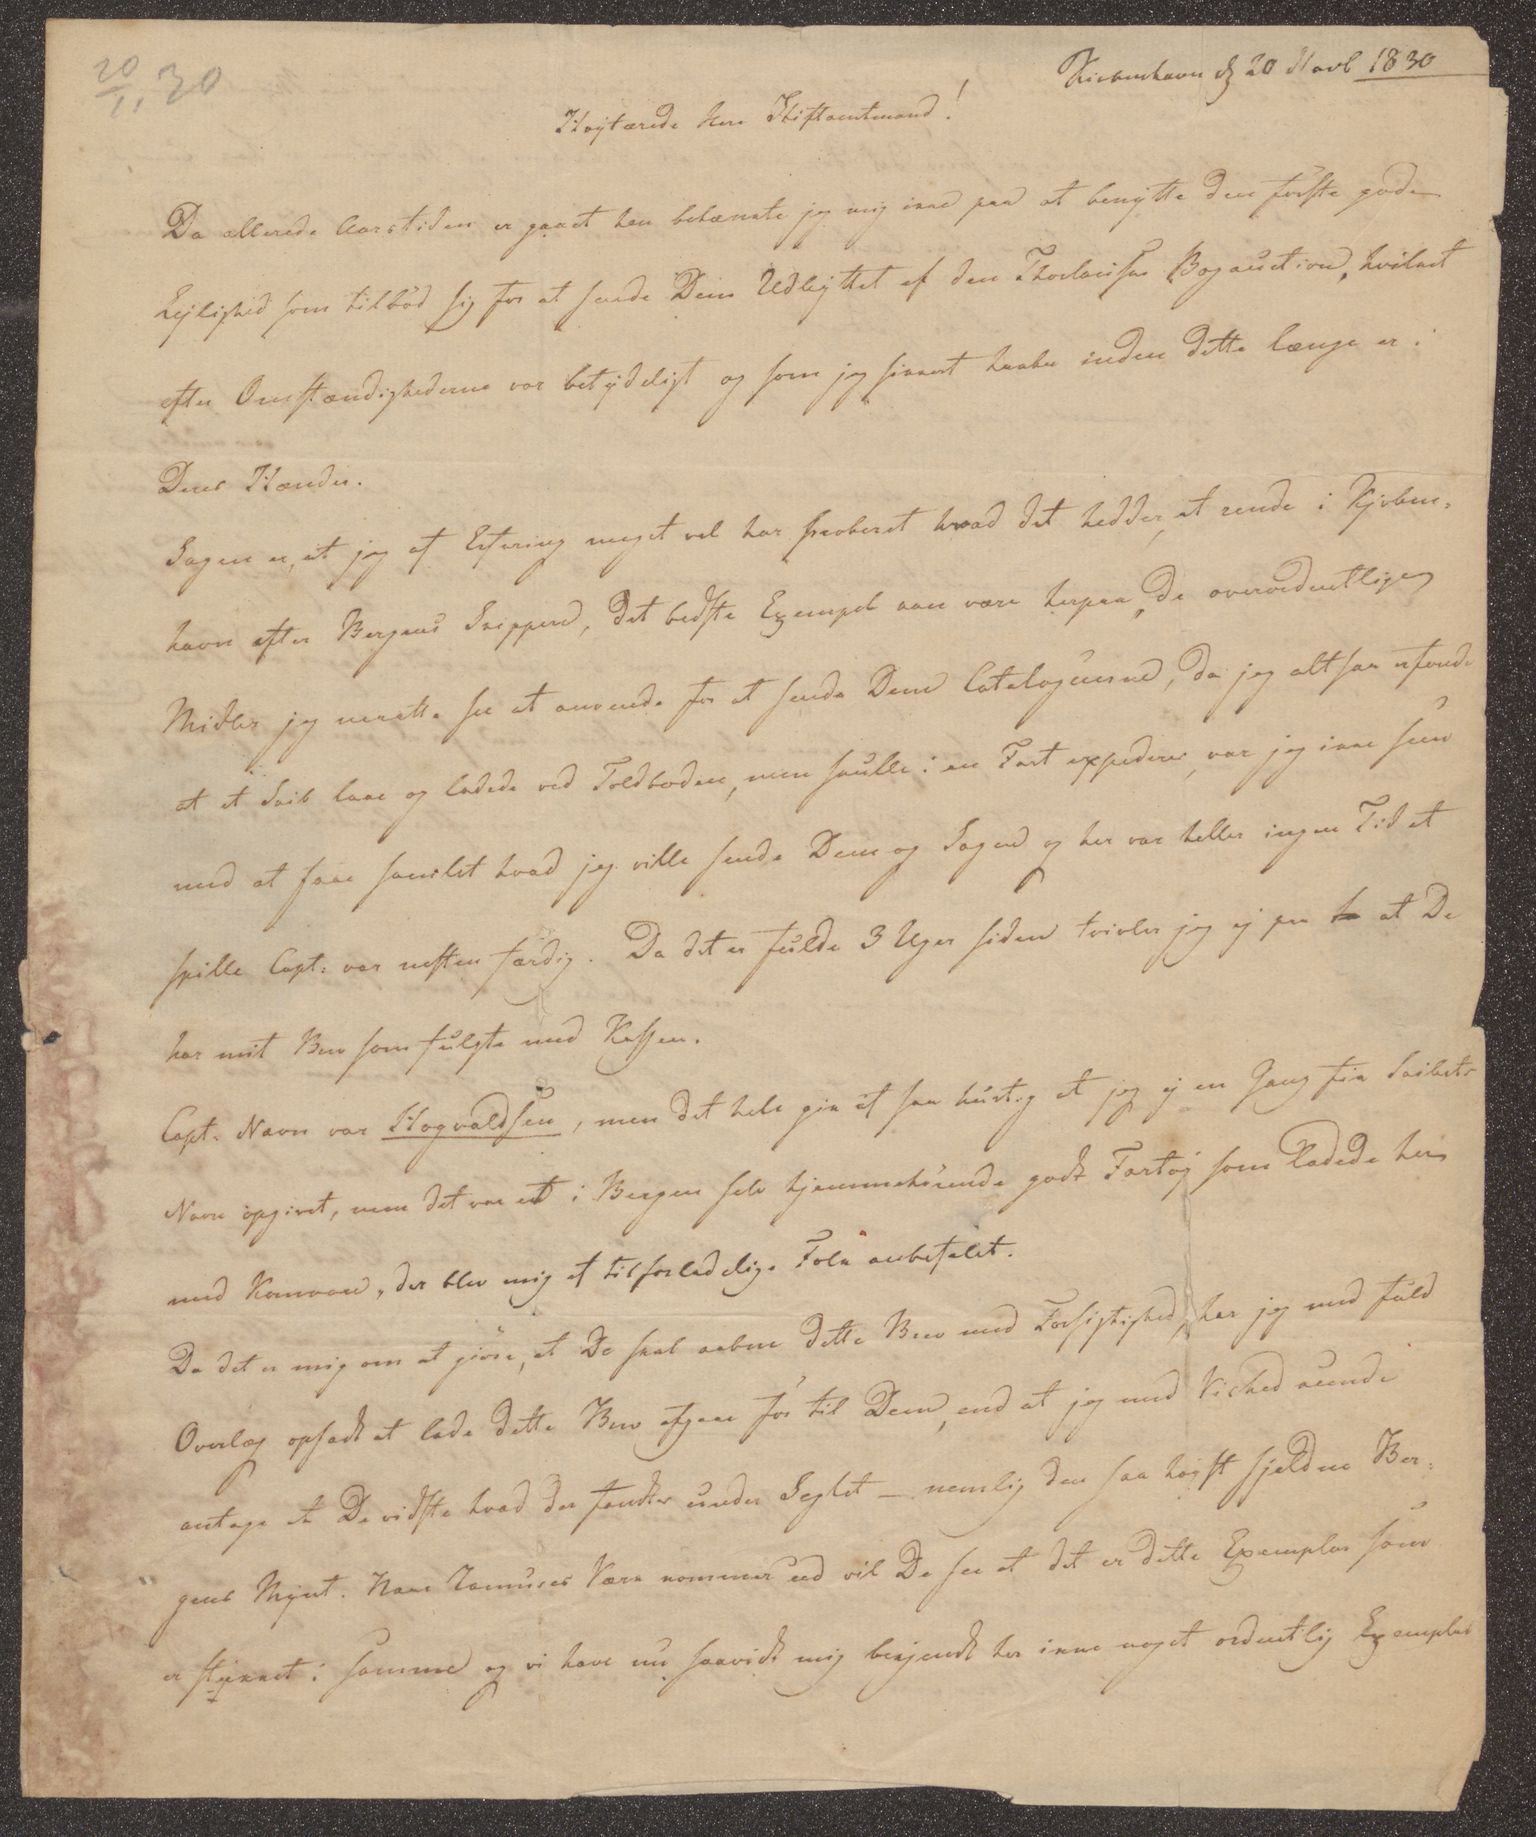 20/11 30
Kiøbenhavn d 20 Novb 1830
Højtærede Herr Stiftamtmand!
Da allerede Aarstiden er gaaet hen betænkte jeg mig ikke paa at benytte den første gode
Lejlighed som tilbød sig for at sende Dem Udbyttet af den Thorlaciske Bogauction, hvilket
efter Omstændighederne var betydeligt og som jeg sikkert haaber inden dette længe er i
Deres Hænder.
Sagen er, at jeg af Erfaring meget vel har proberet hvad det hedder, at rende i Kjøben-
havn efter Bergens Skippere, det bedste Exempel kan være herpaa, de overordentlige
Midler jeg maatte see at anvende for at sende Dem Catalogerne, da jeg altsaa erfoer
at et Skib laae og ladede ved Toldboden, men skulle i en Fart expederes, var jeg ikke seen
med at faae samlet hvad jeg ville sende Dem og Sagen og her var heller ingen Tid at
spille Capt: var næsten færdig. Da det er fulde 3 Uger siden tvivler jeg ej paa at De
har mit Brev som fulgte med Kassen.
Capt. Navn var Hogvaldsen, men det hele gik af saa hurtig at jeg ej en Gang fik Skibets
Navn opgivet, men det var et i Bergen selv hjemmehørende godt Fartøj som ladede her
med Kornvare, der blev mig af tilforladelige Folk anbefalet.
Da det er mig om at giøre, at De skal aabne dette Brev med Forsigtighed, har jeg med fuld
Overlæg opsadt at lade dette Brev afgaae før til Dem, end at jeg med Vished kunde
antage at De vidste hvad der fandtes under Seglet – nemlig den saa højst sjeldne Ber-
gens Mynt. Naar Ramuses Værk kommer ud vil De see at det er dette Exemplar som
er stukket i samme og vi have nu saavidt mig bekjendt her ikke noget ordentlig Exemplar